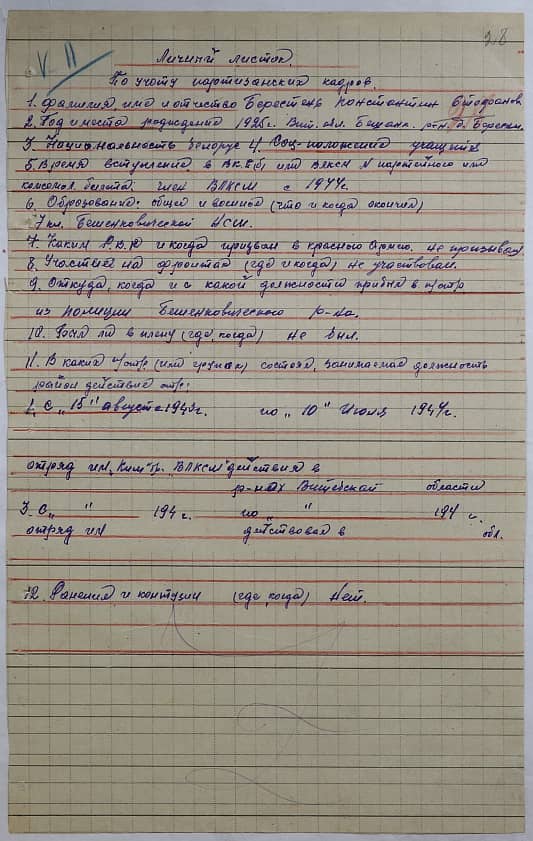 V II
28
Личный листок
По учоту партизанских кадров.
1. Фамилия имя и отчество Берестень Константин Стефанов.
2. Год и места рождения 1925г. Вит. обл. Бешанк. р-н д. Берескн.
3. Национальность белорус 4. Соц-положение учащийся
5. Время вступления в ВК.П(б) или ВЛКСМ N партейного или
комсомол. билета: член ВЛКСМ с 1944г.
6. Образование: общее и военное (что и когда окончил)
7 кл. Бешенковической НСШ.
7. Каким Р.В.К и когда призван в красную Армию. не призывался
8. Участие на фронтах (где и когда) не участвовал.
9. Откуда, когда и с какой должности прибыл в п/отр
из полиции Бешенковичского р-на.
10. Был ли в плену (где, когда) не был.
11. В каких п/отр. (или групах) состоял, занимаемая должность
район действие отр:
1. С „15" августа 1943г. по „10" Июля 1944г.
отряд им. Ким бр. „ВЛКСМ" действия в
р-нах Витебской области
3. С „ " 194 г. по „ " 194 г.
отряд им действовал в обл.
12. Ранения и контузии (где, когда) Нет.